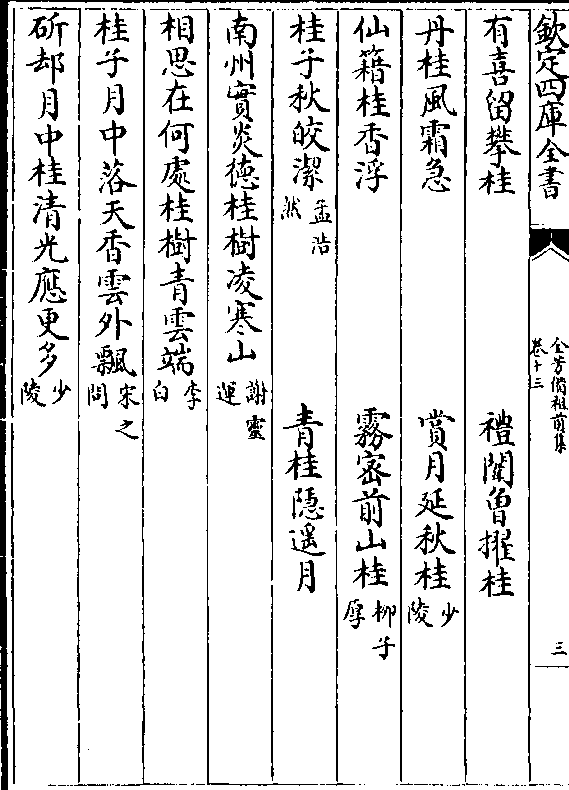 欽定四庫全書
全芳備祖前集
卷十三
三
有喜留攀桂　禮闈曾擢桂
丹桂風霜急　賞月延秋桂少陵
仙籍桂香浮　霧宻前山桂柳子厚
桂子秋皎潔孟浩然　青桂隱遥月
南州實炎徳桂樹凌寒山謝靈運
相思在何處桂樹青雲端李白
桂子月中落天香雲外飄宋之問
斫却月中桂清光應更多少陵